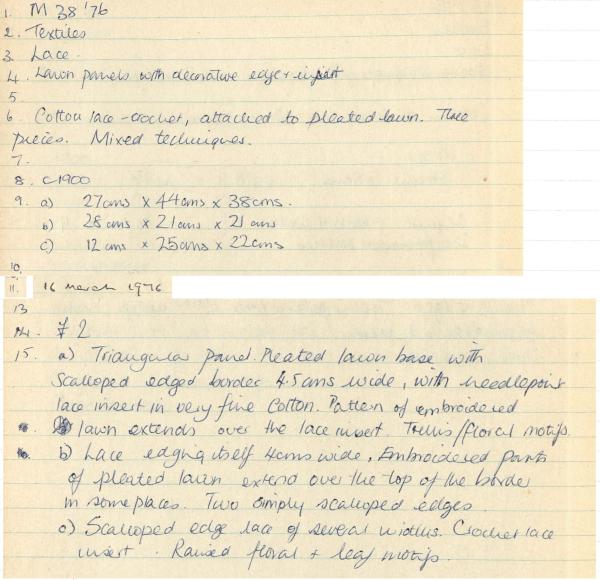 1. M 38 '76
2. Textiles
3. Lace.
4. Lawn panels with decorative edge + insert
5
6. Cotton lace - crochet, attached to pleated lawn. Three
pieces. Mixed techniques.
7.
8. c1900
9. a) 27cms x 44cms x 38cms.
b) 28cms x 21cms x 21cms
c) 12cms x 25cms x 22cms
10.
11. 16 march 1976
13
14. £2
15. a) Triangular panel. Pleated lawn base with
scalloped edged border 4.5cms wide, with needlepoint
lace insert in very fine cotton. Pattern of embroidered
lawn extends over the lace insert. Trellis/floral motifs.
b) Lace edging itself 4cms wide. Embroidered parts
of pleated lawn extend over the top of the border
in some places. Two simply scalloped edges.
c) Scalloped edge lace of several widths. Crochet lace
insert. Raised floral + leaf motifs.